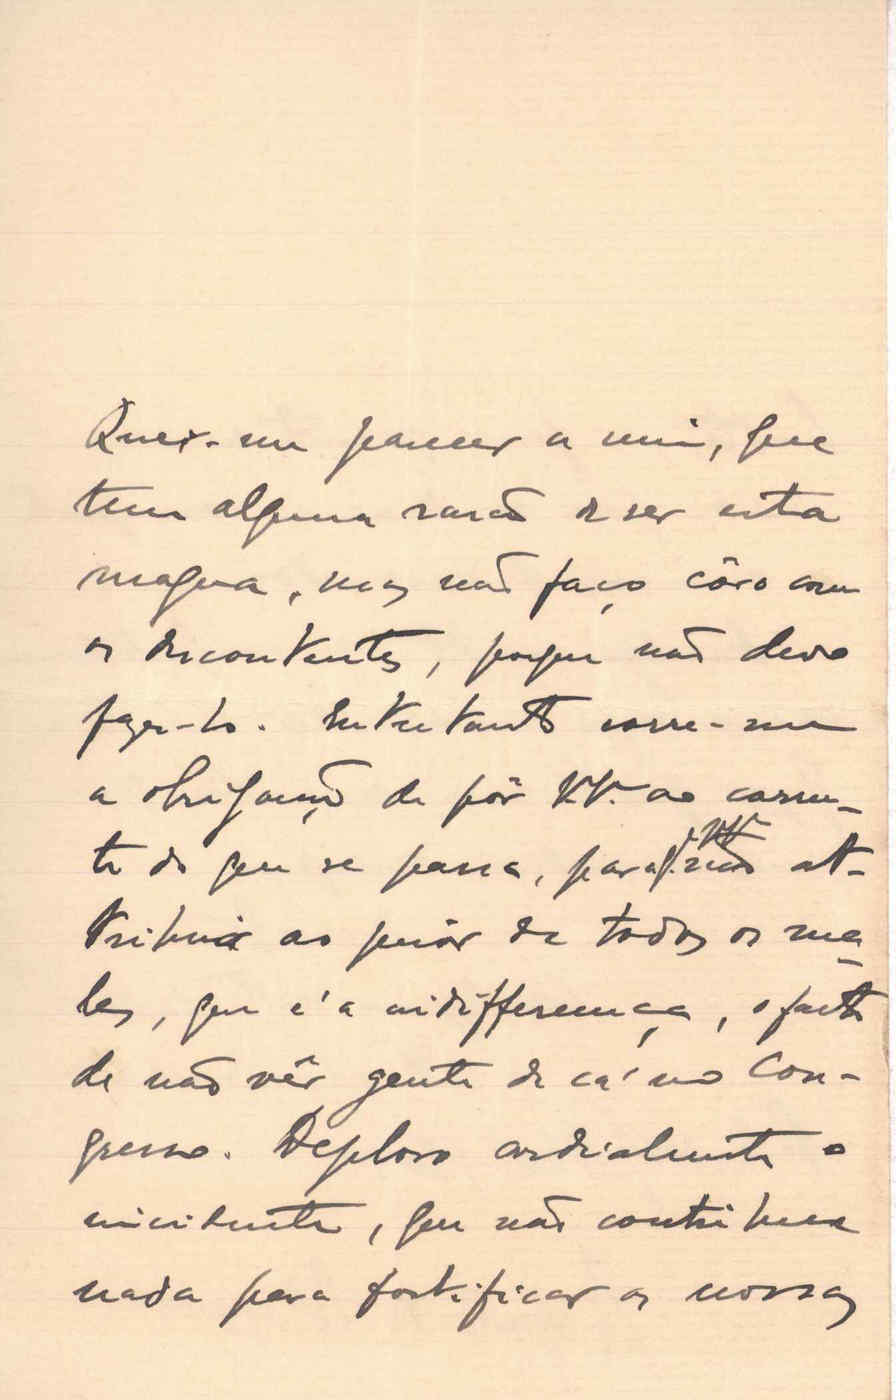 Quer-me parecer a mim, que
tem alguma rasão de ser esta
magua, mas não faço côro com
os descontentes, porque não devo
faze-lo. Entretanto corre-me
a obrigação de pôr VV. ao corren-
te do que se passa, para não at-
tribuir ao peior de todos os ma-
les, que é a indifferença, o facto
de não vêr gente de cá no Con-
gresso. Deploro cordialmente o
incidente, que não contribue
nada para fortificar os nossos